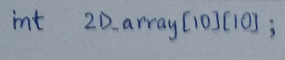 int 2D_array[10][10];